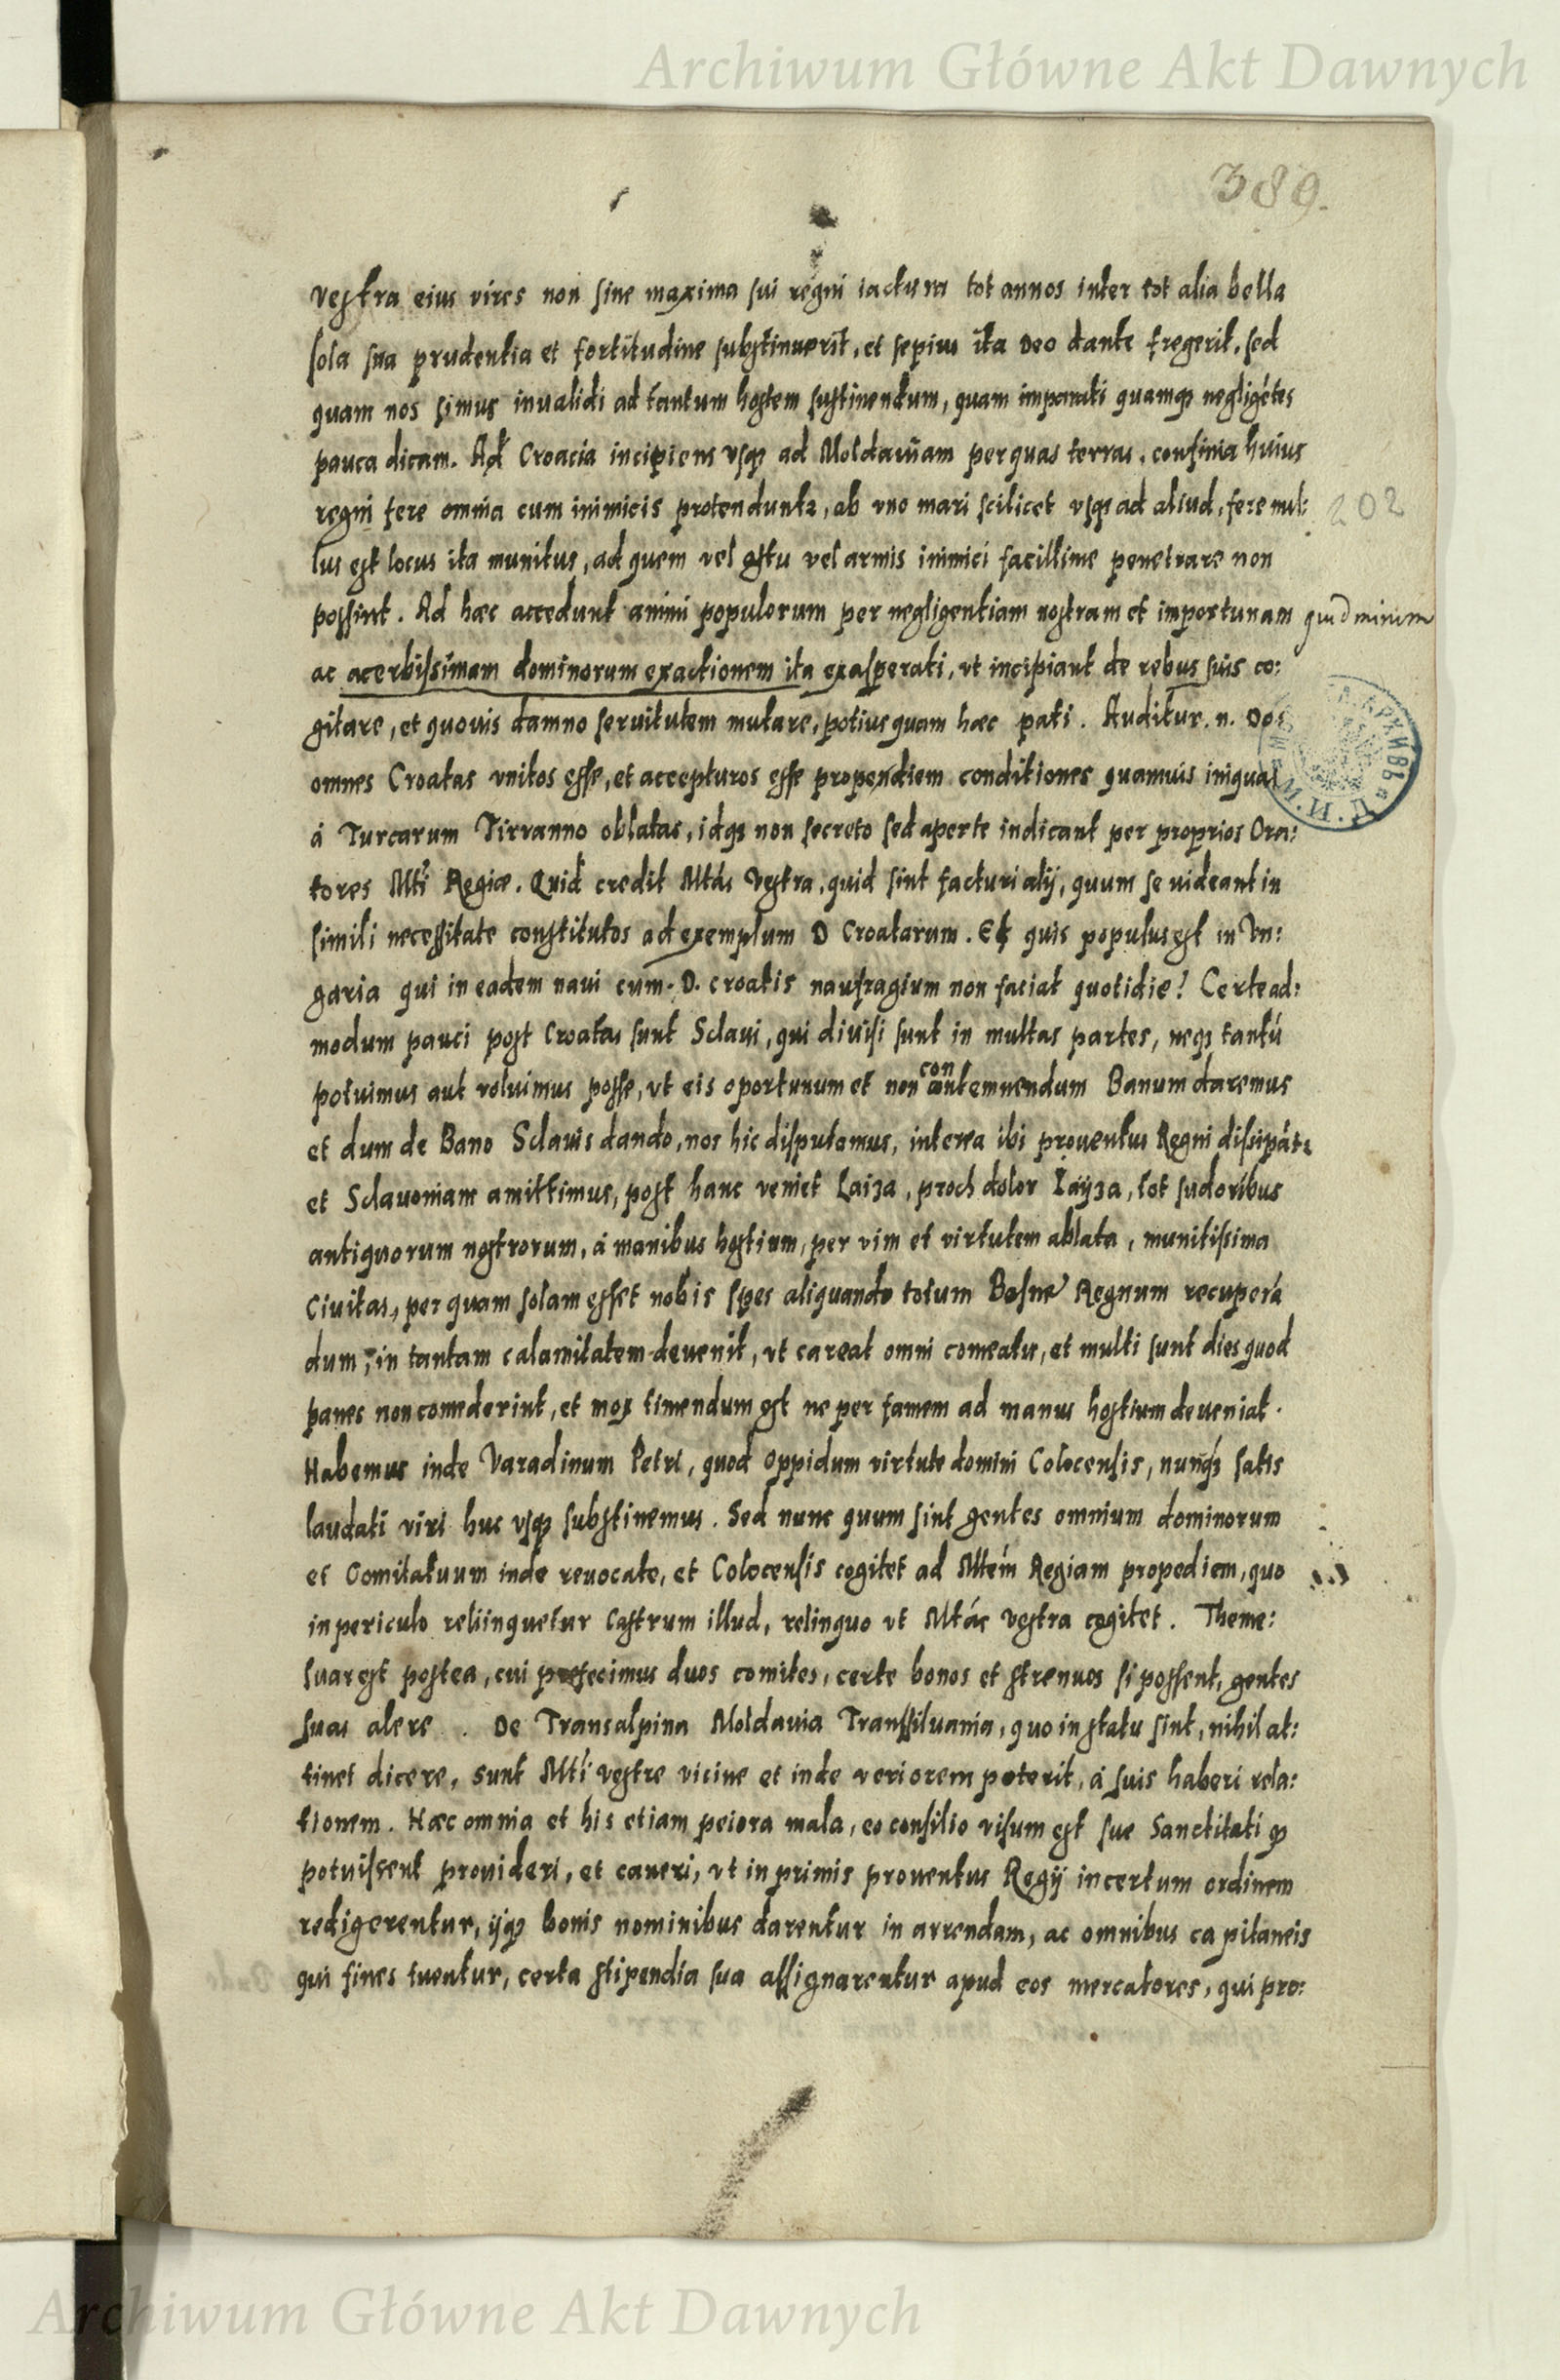 Archiwum Główne Akt Dawnych
389.
vestra eius vires non sine maxima sui regni iactura tot annos inter tot alia bella
sola sua prudentia et fortitudine substinuerit, et sepius ita Deo dante fregerit, sed
quam nos simus inualidi ad tantum hostem sustinendum, quam imparati quamqȝ negligẽtes
pauca dicam. Ad Croacia incipiens vsqȝ ad Moldauiam per quas terras, confinia huius
regni fere omnia cum inimicis protendunt᷑, ab vno mari scilicet vsqȝ ad aliud, fere nul:
202
lus est locus ita munitus, ad quem vel astu vel armis inimici facillime penetrare non
possint. Ad hæc accedunt animi populorum per negligentiam nostram et importunam
quid mirum
ac acerbissimam dominorum exactionem ita exasperati, vt incipiant de rebus suis co:
gitare, et quouis damno seruitutem mutare, potius quam hæc pati. Auditur .n. Dos
omnes Croatas vnitos esse, et accepturos esse propendiem conditiones quamuis iniquas
á Turcarum Tirranno oblatas, idqȝ non secreto sed aperte indicant per proprios Ora:
tores Mti Regiæ. Quid credit Mtás Vestra, quid sint facturi alij, quum se uideant in
simili necessitate constitutos ad exemplum D Croatarum. Et quis populus est in Vn:
garia qui in eadem naui cum. D. croatis naufragium non faciat quotidie? Certe ad:
modum pauci post Croatas sunt Sclaui, qui diuisi sunt in multas partes, neqȝ tantũ
potuimus aut voluimus posse, vt eis oportunum et non contemnendum Banum daremus
et dum de Bano Sclauis dando, nos hic disputamus, interea ibi prouentus Regni dissipãt᷑
et Sclauoniam amittimus, post hanc veniet Laiza, proch dolor Iayza, tot sudoribus
antiquorum nostrorum, á manibus hostium, per vim et virtutem ablata, munitissima
Ciuitas, per quam solam esset nobis spes aliquando totum Bosne Regnum recuperã
dum, in tantam calamitatem deuenit, vt careat omni comeatu, et multi sunt dies quod
panes non comederint, et mox timendum est ne per famem ad manus hostium deueniat.
Habemus inde Varadinum Petri, quod oppidum virtute domini Colocensis, nunqȝ satis
laudati viri huc vsqȝ substinemus. Sed nunc quum sint gentes omnium dominorum
et Comitatuum inde reuocate, et Colocensis cogitet ad Mtém Regiam propediem, quo
in periculo reliinquetur Castrum illud, relinquo vt Mtás vestra cogitet. Theme:
suar est postea, cui prefecimus duos comites, certe bonos et strenuos si possent, gentes
suas alere. De Transalpina Moldauia Transsiluania, quo in statu sint, nihil at:
tinet dicere, sunt Mti vestre vicine et inde veriorem poterit, á suis haberi rela:
tionem. Hæc omnia et his etiam peiora mala, eo consilio visum est sue Sanctitati qȝ
potuissent prouideri, et caueri, vt in primis prouentus Regij in certum ordinem
redigerentur, ijqȝ bonis nominibus darentur in arrendam, ac omnibus capitaneis
qui fines tuentur, certa stipendia sua assignarentur apud eos mercatores, qui pro:
Archiwum Główne Akt Dawnych